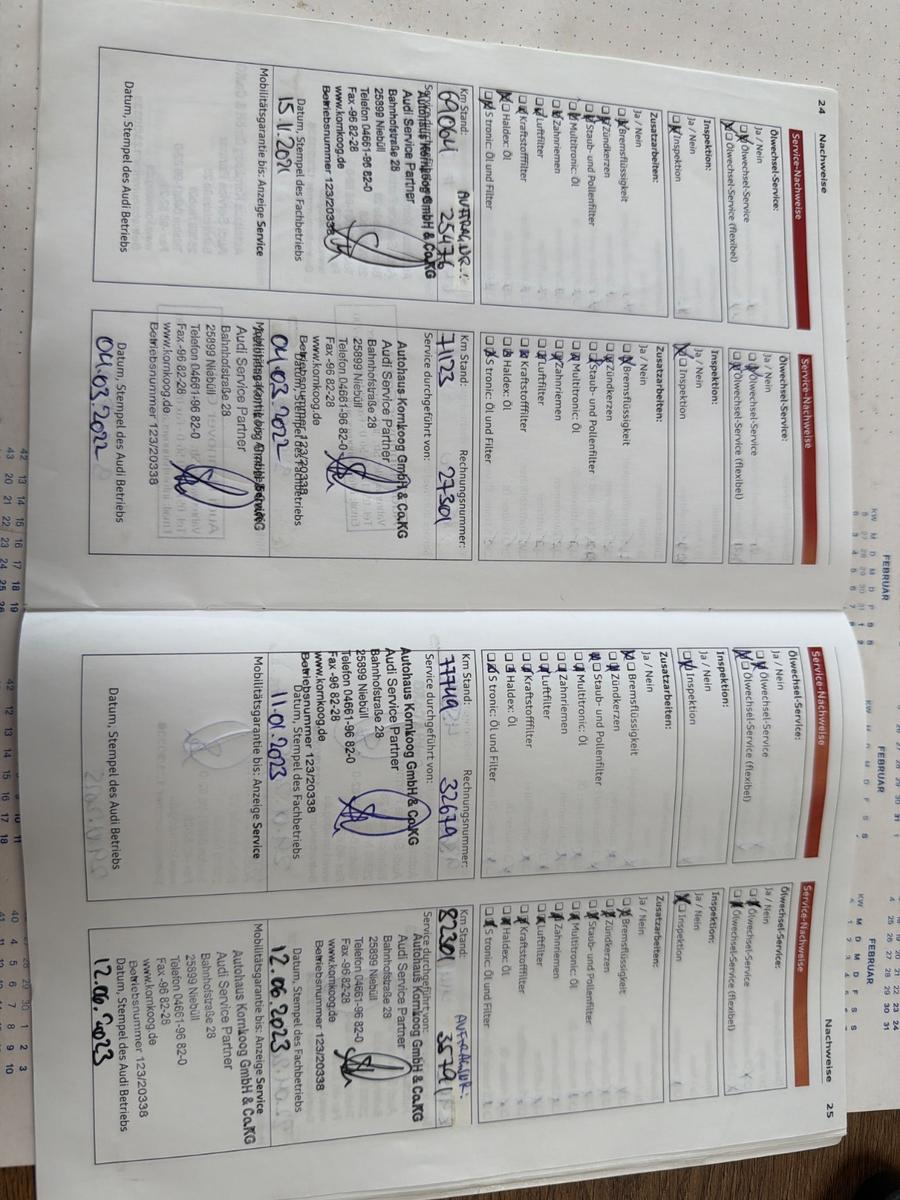 24 Nachweise
Service-Nachweise
Ölwechsel-Service:
Ja / Nein
Ölwechsel-Service
Ölwechsel-Service (flexibel)
Inspektion:
Ja / Nein
Inspektion
Zusatzarbeiten:
Ja / Nein
Bremsflüssigkeit
Zündkerzen
Staub- und Pollenfilter
Multitronic: Öl
Zahnriemen
Luftfilter
Kraftstofffilter
Haldex: Öl
S tronic: Öl und Filter
Km Stand: AUFTRAG.NR.:
69064 25476
Service durchgeführt von:
Autohaus Kornkoog GmbH & Co.KG
Audi Service Partner
Bahnhofstraße 28
25899 Niebüll
Telefon 04661-96 82-0
Fax -96 82-28
www.kornkoog.de
Betriebsnummer 123/20338
Datum, Stempel des Fachbetriebs
15.1.2021
Mobilitätsgarantie bis: Anzeige Service
Datum, Stempel des Audi Betriebs
Service-Nachweise
Ölwechsel-Service:
Ja / Nein
Ölwechsel-Service
Ölwechsel-Service (flexibel)
Inspektion:
Ja / Nein
Inspektion
Zusatzarbeiten:
Ja / Nein
Bremsflüssigkeit
Zündkerzen
Staub- und Pollenfilter
Multitronic: Öl
Zahnriemen
Luftfilter
Kraftstofffilter
Haldex: Öl
S tronic: Öl und Filter
Km Stand: Rechnungsnummer:
71123 27301
Service durchgeführt von:
Autohaus Kornkoog GmbH & Co.KG
Audi Service Partner
Bahnhofstraße 28
25899 Niebüll
Telefon 04661-96 82-0
Fax -96 82-28
www.kornkoog.de
Betriebsnummer 123/20338
Datum, Stempel des Fachbetriebs
04.03.2022
Mobilitätsgarantie bis: Anzeige Service
Autohaus Kornkoog GmbH & Co.KG
Audi Service Partner
Bahnhofstraße 28
25899 Niebüll
Telefon 04661-96 82-0
Fax -96 82-28
www.kornkoog.de
Betriebsnummer 123/20338
Datum, Stempel des Audi Betriebs
04.03.2022
Service-Nachweise
Ölwechsel-Service:
Ja / Nein
Ölwechsel-Service
Ölwechsel-Service (flexibel)
Inspektion:
Ja / Nein
Inspektion
Zusatzarbeiten:
Ja / Nein
Bremsflüssigkeit
Zündkerzen
Staub- und Pollenfilter
Multitronic: Öl
Zahnriemen
Luftfilter
Kraftstofffilter
Haldex: Öl
S tronic: Öl und Filter
Km Stand: Rechnungsnummer:
77749 32679
Service durchgeführt von:
Autohaus Kornkoog GmbH & Co.KG
Audi Service Partner
Bahnhofstraße 28
25899 Niebüll
Telefon 04661-96 82-0
Fax -96 82-28
www.kornkoog.de
Betriebsnummer 123/20338
Datum, Stempel des Fachbetriebs
11.01.2023
Mobilitätsgarantie bis: Anzeige Service
Datum, Stempel des Audi Betriebs
Nachweise 25
Service-Nachweise
Ölwechsel-Service:
Ja / Nein
Ölwechsel-Service
Ölwechsel-Service (flexibel)
Inspektion:
Ja / Nein
Inspektion
Zusatzarbeiten:
Ja / Nein
Bremsflüssigkeit
Zündkerzen
Staub- und Pollenfilter
Multitronic: Öl
Zahnriemen
Luftfilter
Kraftstofffilter
Haldex: Öl
S tronic: Öl und Filter
Km Stand: AUFTRAG.NR.:
82301 35791
Service durchgeführt von:
Autohaus Kornkoog GmbH & Co.KG
Audi Service Partner
Bahnhofstraße 28
25899 Niebüll
Telefon 04661-96 82-0
Fax -96 82-28
www.kornkoog.de
Betriebsnummer 123/20338
Datum, Stempel des Fachbetriebs
12.06.2023
Mobilitätsgarantie bis: Anzeige Service
Autohaus Kornkoog GmbH & Co.KG
Audi Service Partner
Bahnhofstraße 28
25899 Niebüll
Telefon 04661-96 82-0
Fax -96 82-28
www.kornkoog.de
Betriebsnummer 123/20338
Datum, Stempel des Audi Betriebs
12.06.2023
FEBRUAR
FEBRUAR
FEBRUAR